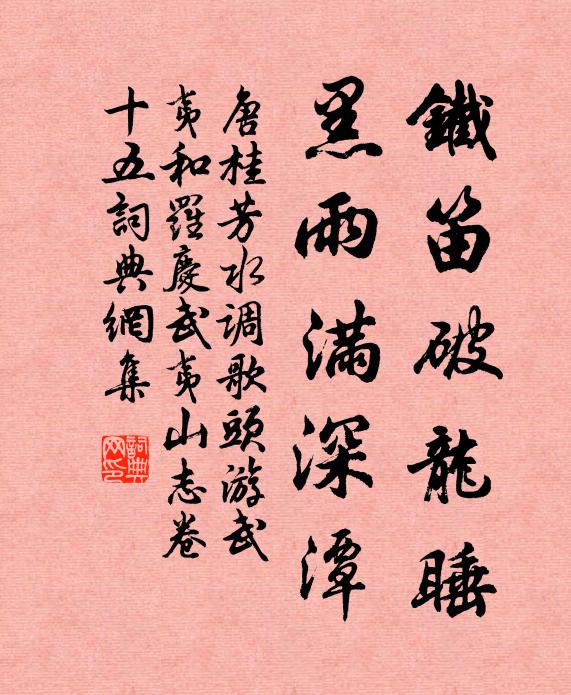 鐵笛破龍睡
黑雨滿深潭
唐桂芳水调歌頭游武
夷和羅慶武夷山志卷
十五詞典網集
詞典网印